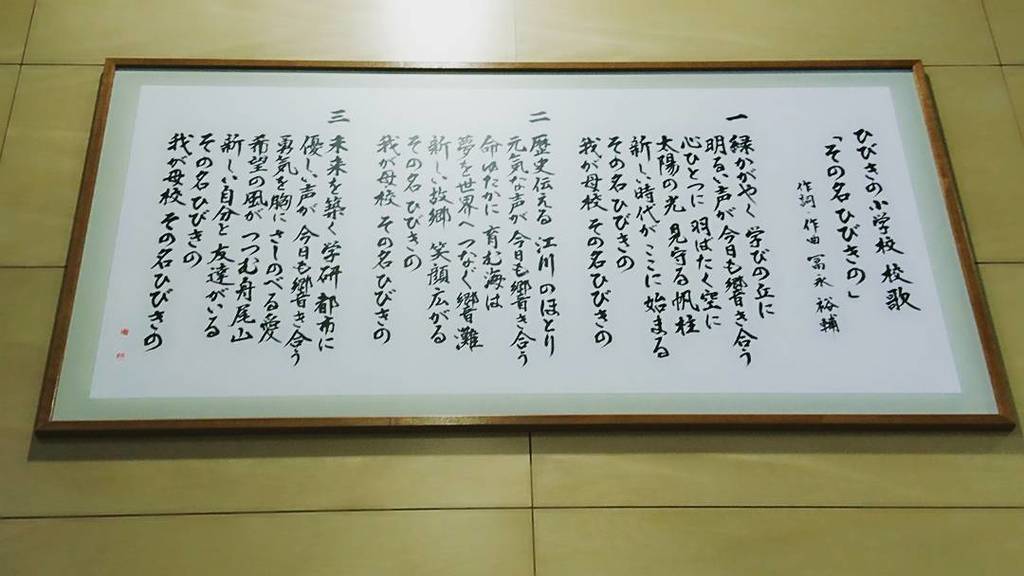 ひびきの小学校 校歌
「その名ひびきの」
作詞・作曲 冨永裕輔
一 緑かがやく 学びの丘に
明るい声が 今日も響き合う
心ひとつに 羽ばたく空に
太陽の光 見守る帆柱
新しい時代が ここに始まる
その名ひびきの
我が母校 その名ひびきの
二 歴史伝える 江川のほとり
元気な声が 今日も響き合う
命ゆたかに 育む海は
夢を世界へ つなぐ響灘
新しい故郷 笑顔広がる
その名ひびきの
我が母校 その名ひびきの
三 未来を築く 学研都市に
優しい声が 今日も響き合う
勇気を胸に さしのべる愛
希望の風が つつむ舟尾山
新しい自分と 友達がいる
その名ひびきの
我が母校 その名ひびきの